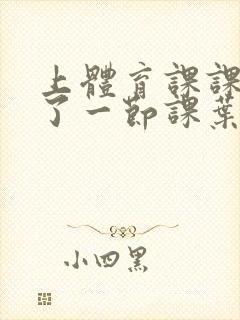 上體育課課
了一節課葉
小四黑